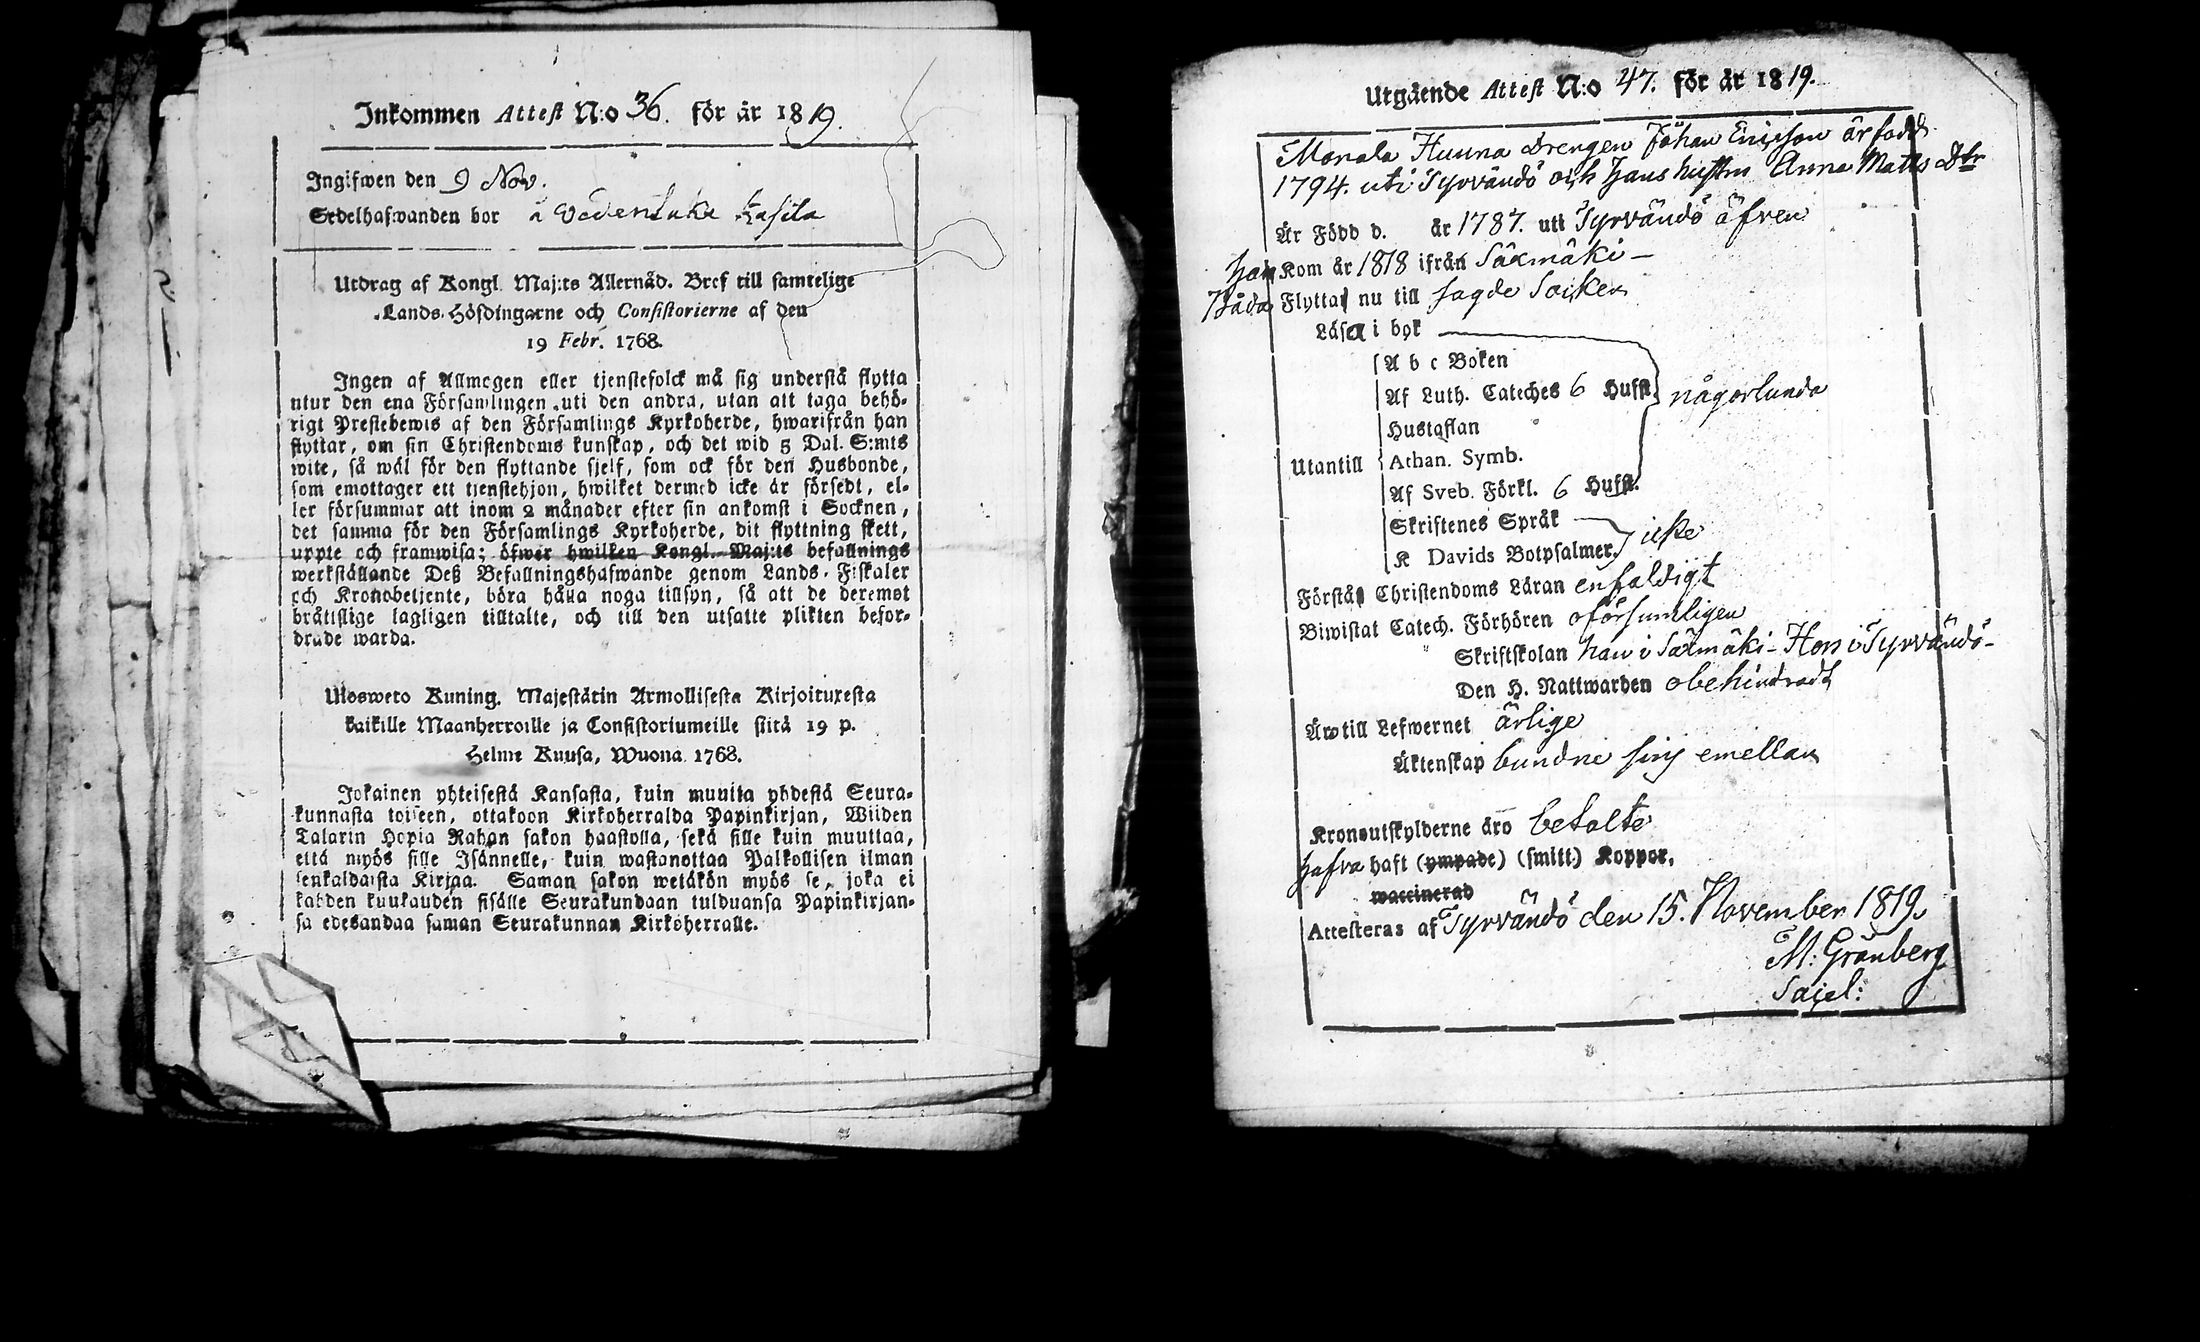 Inkommen Attest N:o 36. för år 1819.
Ingifwen den 9 Nov.
Sedelhafwanden bor å Vedentaka Kasila
Utdrag af Kongl. Maj:ts Allernåd. Bref till samtelige
Lands-Höfdingarne och Consistorierne af den
19 Febr. 1768.
Ingen af Allmogen eller tjenstefolck må sig understå flytta
utur den ena Församlingen uti den andra, utan att taga behö-
rigt Prestebewis af den Församlings Kyrkoherde, hwarifrån han
flyttar, om sin Christendoms kunskap, och det wid 5 Dal. S:mts
wite, så wäl för den flyttande sjelf, som ock för den Husbonde,
som emottager ett tjenstehjon, hwilket dermed icke är försedt, el-
ler försummar att inom 2 månader efter sin ankomst i Socknen,
det samma för den Församlings Kyrkoherde, dit flyttning skett,
uppte och framwisa; öfwer hwilken Kongl. Maj:ts befallnings
werkställande Deß Befallningshafwande genom Lands-Fiskaler
och Kronobetjente, böra hålla noga tillsyn, så att de deremot
bråttslige lagligen tilltalte, och till den utsatte plikten befor-
drade warda.
Ulosweto Kuning. Majestätin Armollisesta Kirjoituxesta
kaikille Maanherroille ja Consistoriumeille siitä 19 p.
Helme Kuusa, Wuona 1768.
Jokainen yhteisestä Kansasta, kuin muuita yhdestä Seura-
kunnasta toiseen, ottakoon Kirkoherralda Papinkirjan, Wiiden
Talarin Hopia Rahan sakon haastolla, sekä sille kuin muuttaa,
että myös sille Isännelle, kuin wastanottaa Palkollisen ilman
senkaldaista Kirjaa. Saman sakon wetäkön myös se, joka ei
kahden kuukauden sisälle Seurakundaan tulduansa Papinkirjan-
sa edesandaa saman Seurakunnan Kirkoherralle.
Utgående Attest N:o 47. för år 1819.
Monala Huuna Drengen Johan Ericson är född
1794. uti Tyrvändö och hans hustru Anna Matts Dtr
Är Född d. år 1787. uti Tyrvändö äfven
han Kom år 1818 ifrån Säxmäki –
Båda Flytta nu till sagde Socken
Läsa i bok
A b c Boken
Af Luth. Cateches 6 Hufst. någorlunda
Hustaflan
Utantill Athan. Symb.
Af Sveb. Förkl. 6 Hufst.
Skriftenes Språk
K Davids Botpsalmer. icke
Förstå Christendoms Läran enfaldigt
Biwistat Catech. Förhören oförsumligen
Skriftskolan han i Säxmäki – Hon i Tyrvändö –
Den H. Nattwarden obehindradt
Äro till Lefwernet ärlige
Äktenskap bundne sins emellan
Kronoutskylderne äro betalte
hafva haft (ympade) (smitt.) Koppor,
waccinerad
Attesteras af Tyrvändö den 15. November 1819.
M: Grönberg
Sacel: